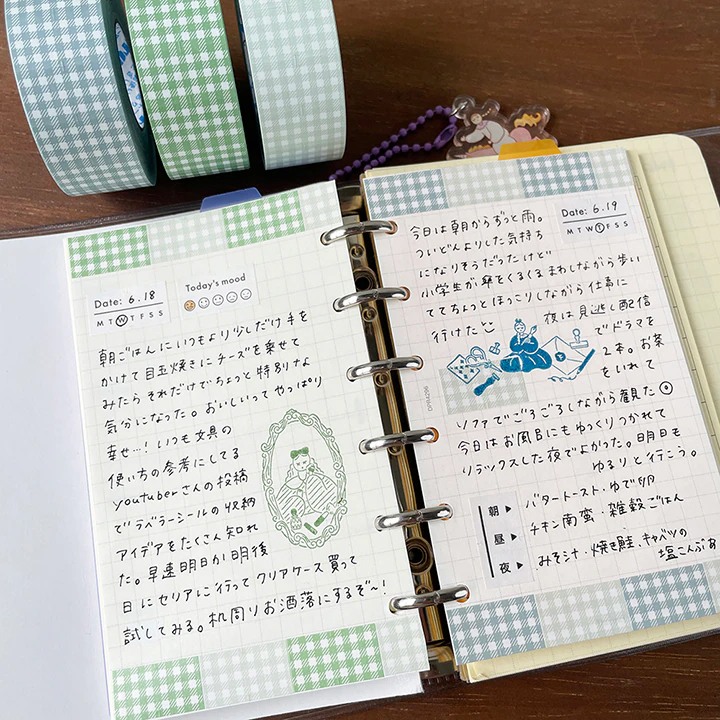 Date: 6.18
M T W T F S S
Today's mood
朝ごはんにいつもより少しだけ手を
かけて目玉焼きにチーズを乗せて
みたらそれだけでちょっと特別な
気分になった。おいしいってやっぱり
幸せ…！いつも文具の
使い方の参考にしてる
youtuberさんの投稿
でラベラーシールの収納
アイデアをたくさん知れ
た。早速明日か明後
日にセリアに行ってクリアケース買って
試してみる。机周りお洒落にするぞ〜！
Date: 6.19
M T W T F S S
今日は朝からずっと雨。
ついどんよりした気持ち
になりそうだったけど
小学生が傘をくるくるまわしながら歩い
ててちょっとほっこりしながら仕事に
行けたとこ
夜は見逃し配信
でドラマを
2本。お茶
をいれて
ソファでごろごろしながら観た
今日はお風呂にもゆっくりつかれて
リラックスした夜でよかった。明日も
ゆるりと行こう。
朝 ▶ バタートースト・ゆで卵
昼 ▶ チキン南蛮・雑穀ごはん
夜 ▶ みそ汁・焼き鮭、キャベツの
塩こんぶあ